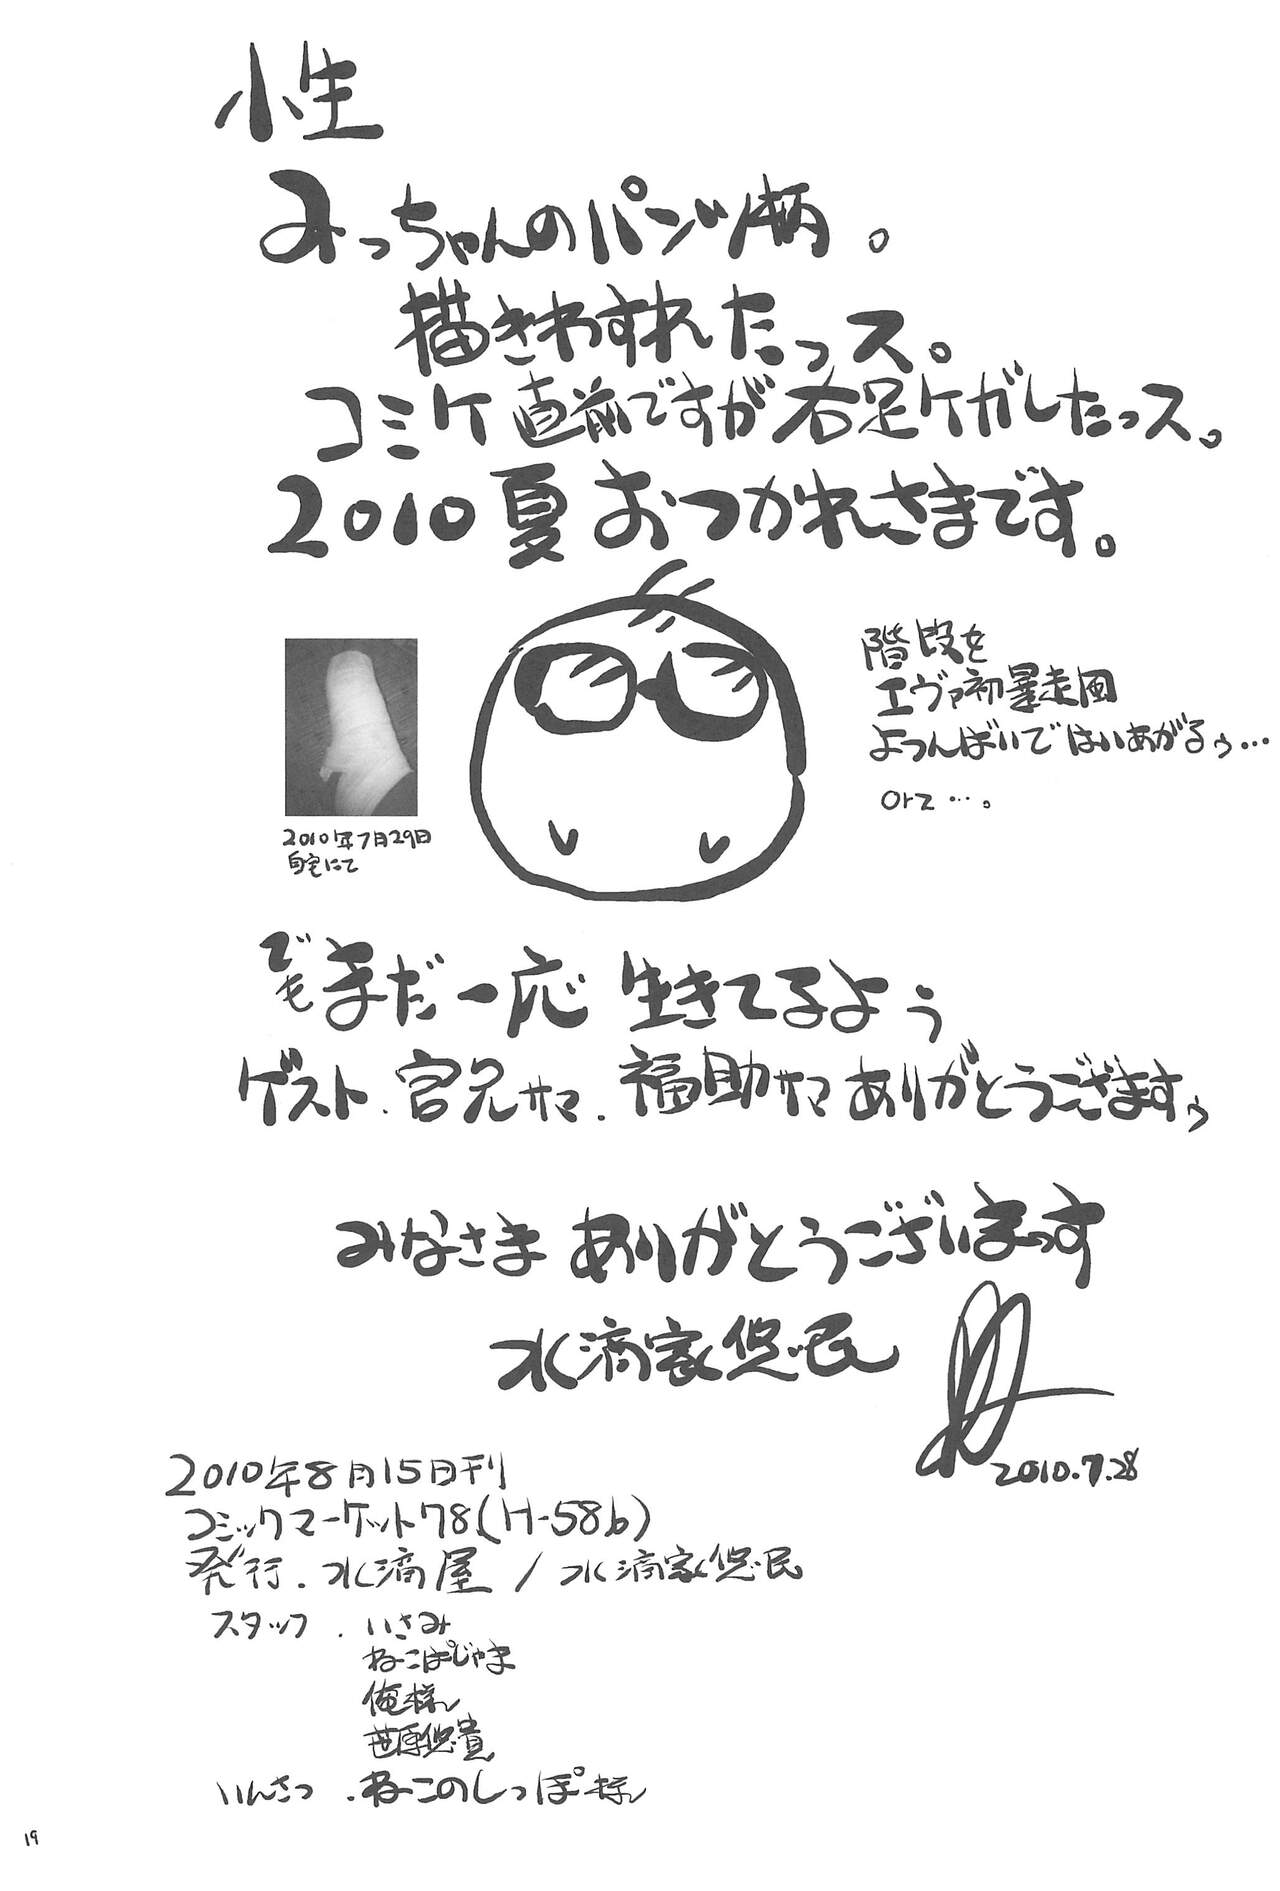 小生
みっちゃんのパンツ柄。
描きわすれたっス。
コミケ直前ですが右足ケガしたっス。
2010夏おつかれさまです。
階段を
エヴァ初暴走風
よつんばいではいあがるぅ…
orz…。
2010年7月29日
自宅にて
でもまだ一応 生きてるよぅ
ゲスト.宮兄サマ.福助サマありがとうござますぅ
みなさま ありがとうございまっす
水滴家悠民
2010.7.28
2010年8月15日刊
コミックマーケット78(H-58b)
発行.水滴屋/水滴家悠民
スタッフ.いさみ
ねこぱじゃま
俺様
笹原悠貴
いんさつ.ねこのしっぽ様
19